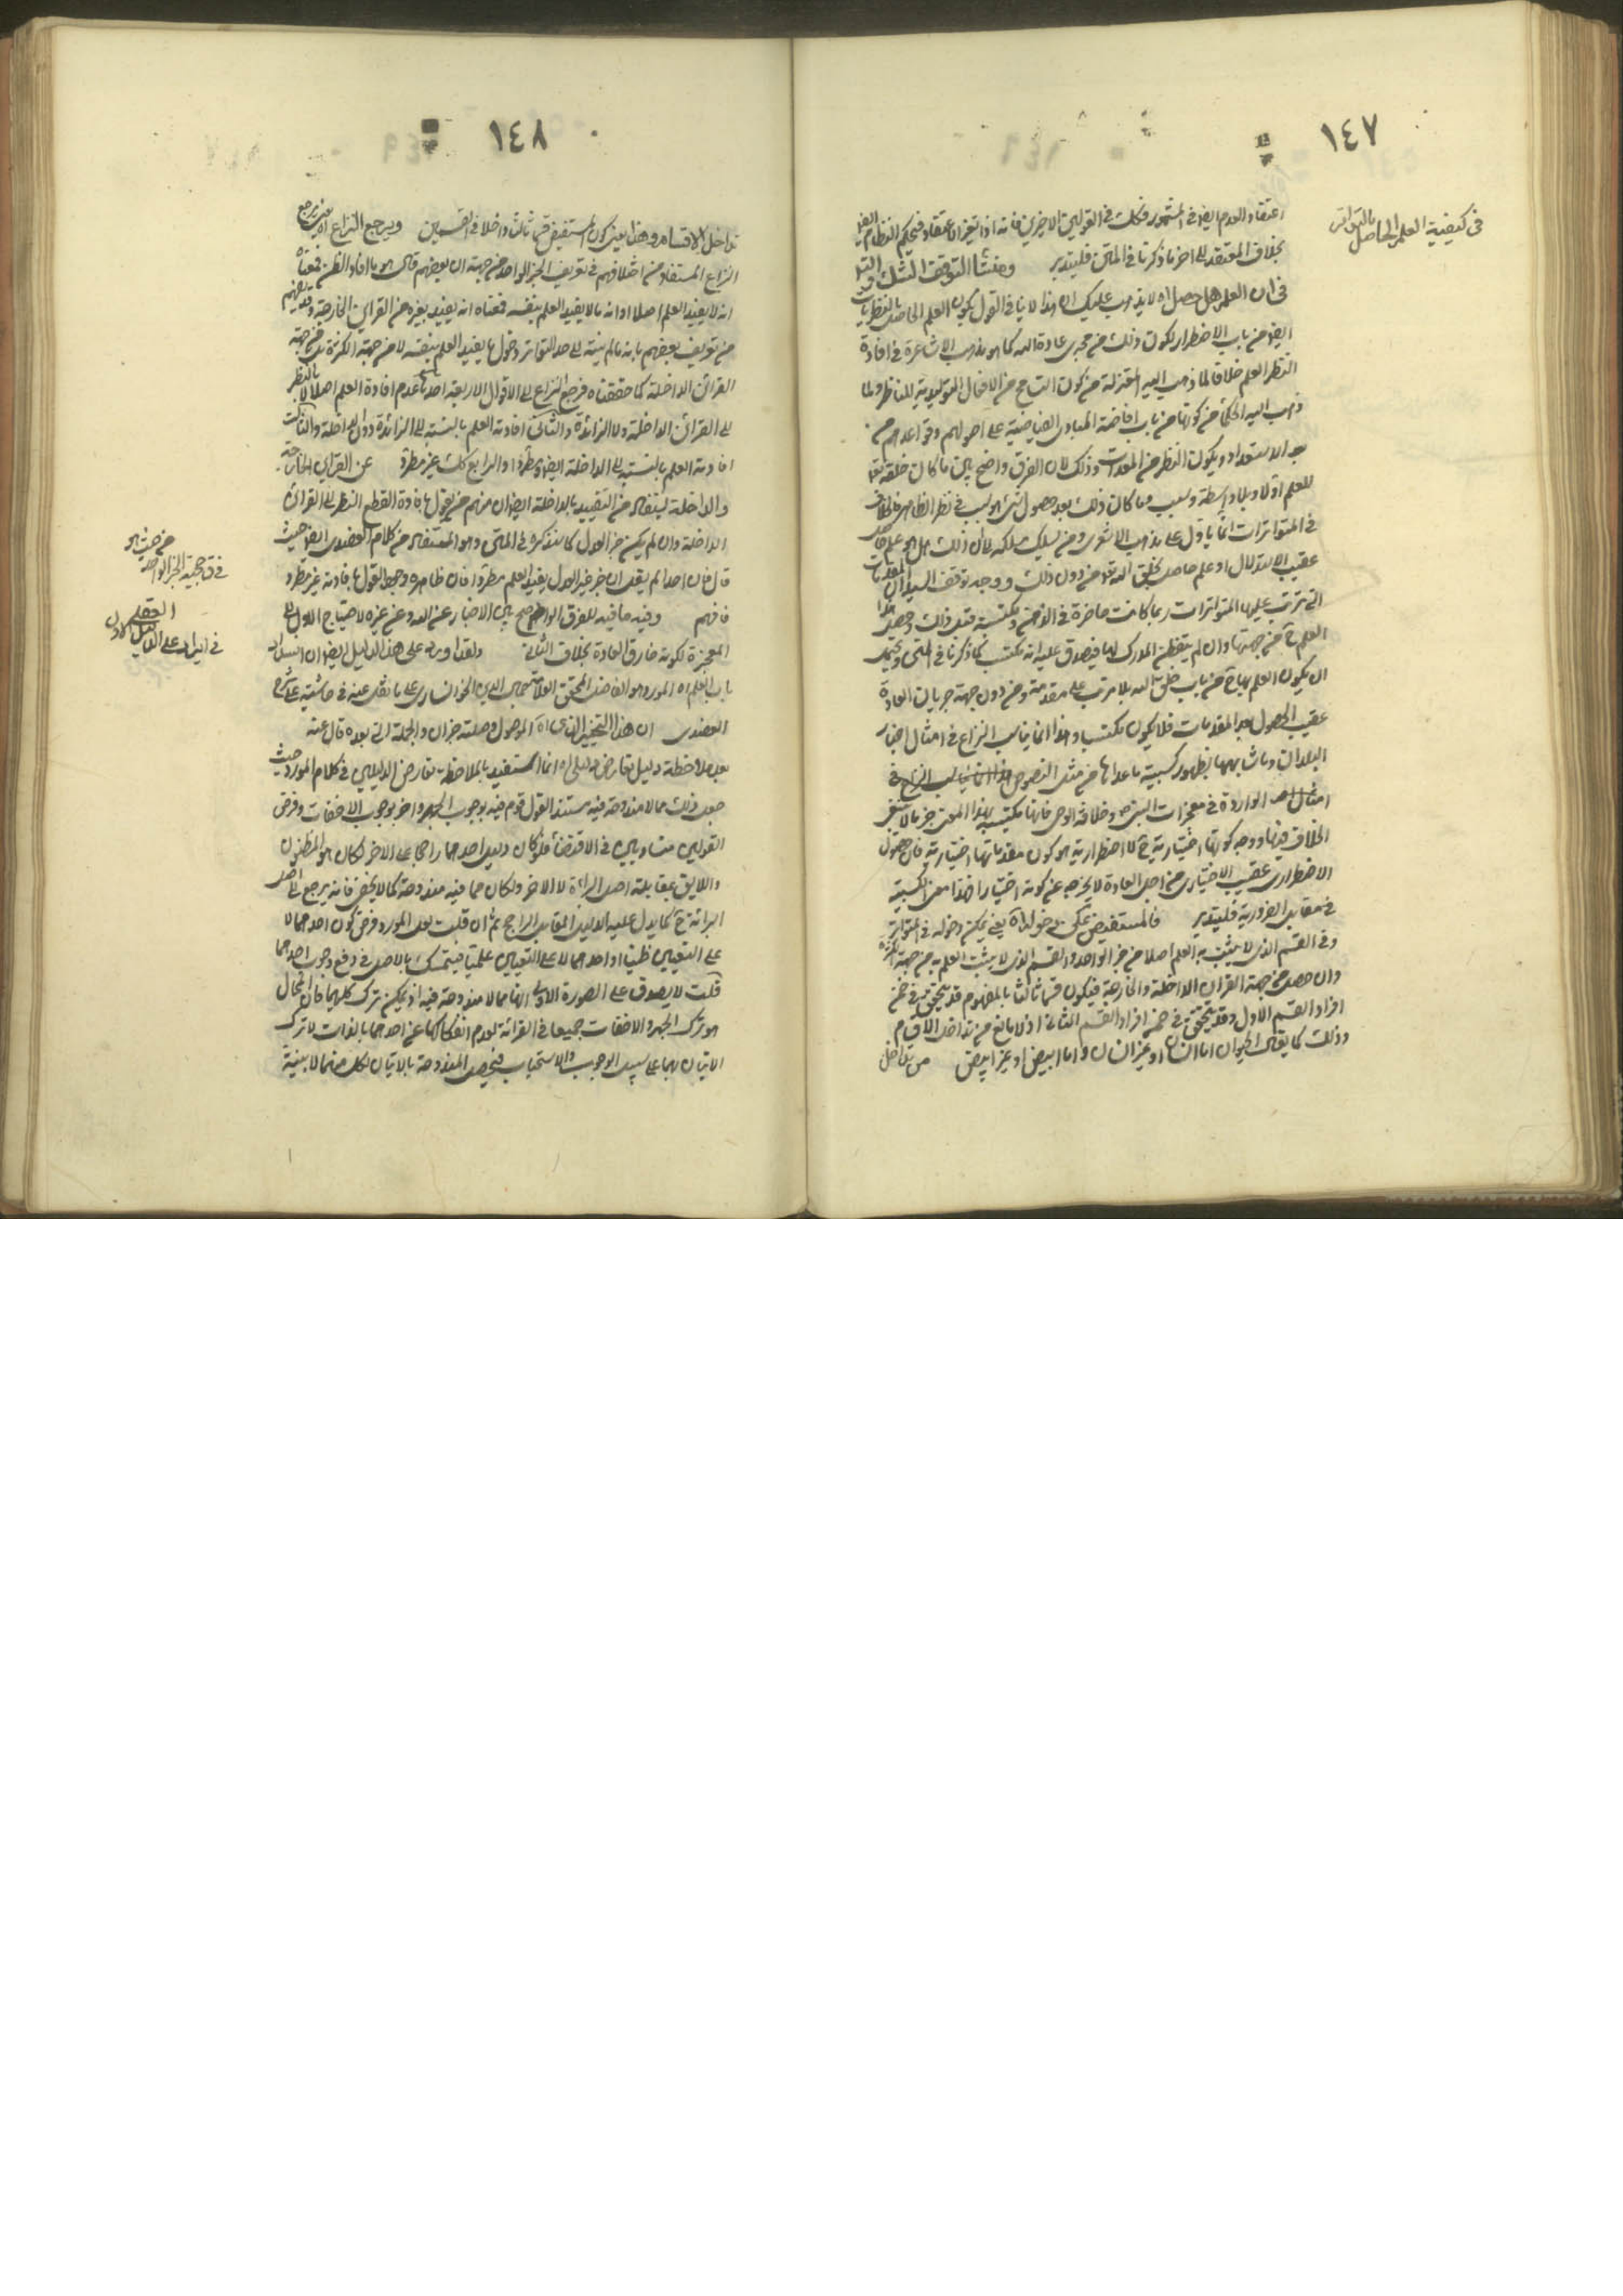 ١٤٧
فى كيفية العلم الحاصل بالتواتر
اعتقاد العدم ايضا فى المشهور فكلت فى القولين الاخيرين فانه اذا تغير الاعتقاد فيحكم النظام
بخلاف المعتقد الى اخر ما ذكرنا فى المتن فليتدبر ومنشأ التوقف الشك
فى ان العلم هل حصل اه لا يذهب عليك ان هذا لا ينافى القول بكون العلم الحاصل بالنظريات
ايضا من باب الاضطرار لكون ذلك من مجرى عادة الله كما هو مذهب الاشاعرة فى افادة
النظر العلم خلافا لما ذهب اليه المعتزلة من كون النتايج من الافعال التوليدية للناظر ولما
ذهب اليه الحكماء من كونها من باب افاضة المبادى الفياضية على اصولهم وقواعدهم من
بعد الاستعداد ويكون النظر من المعدات وذلك لان الفرق واضح بين ما كان خلقه تعالى
للعلم اولا وبلا واسطة وسبب وما كان ذلك بعد حصول شئ هو سبب فى نظر الظاهر فالخلاف
فى المتواترات انما ياول على مذهب الاشعرى ومن يسلك مسلكه بان ذلك هل هو علم حاصل
عقيب الاستدلال او علم حاصل بخلق الله تعالى من دون ذلك ووجه توقف السيد ان المقدمات
التى ترتب عليها المتواترات ربما كانت حاضرة فى الذهن ومكتسبة قبل ذلك وحصل
العلم من جهتها وان لم يتفطن المدرك لها فيصدق عليه انه مكتسب كما ذكرنا فى المتن ويحتمل
ان يكون العلم بها من باب خلق الله بلا ترتب على مقدمة ومن دون جهة جريان العادة
عقيب الحصول بعد المقدمات فلا يكون مكتسبا وهذا انما يناسب النزاع فى امثال اخبار
البلدان وما شابهها لظهور كسبية ما عداها من مثل النصوص
امثال الواردة فى معجزات النبى ص وخلافة الوصى فانها مكتسبة بهذا المعنى جزما لا ينبغى
الخلاف فيها ووجه كونها اختيارية لا اضطرارية هو كون مقدماتها اختيارية فان حصول
الاضطرارى عقيب الاختيارى من اجل العادة لا يخرجه عن كونه اختيارا فهذا معنى الكسبية
فى مقابل الضرورية فليتدبر فالمستفيض يمكن دخوله اه يعنى يمكن دخوله فى المتواتر
وفى القسم الذى لا يثبت به العلم اصلا من خبر الواحد والقسم الذى لا يثبت العلم به من جهة الكثرة
وان حصل من جهة القرائن الداخلة والخارجة فيكون قسما ثالثا بالمفهوم قد يتحقق فى ضمن
افراد القسم الاول وقد يتحقق فى ضمن افراد القسم الثانى اذ لا مانع من تداخل الاقسام
وذلك كما يقال الحيوان اما انسان او غير انسان واما ابيض او غير ابيض من تداخل
١٤٨
تداخل الاقسام وهذا يعنى كون المستفيض قسما ثالثا داخلا فى القسمين ويرجع النزاع اه يعنى يرجع
النزاع المستفاد من اختلافهم فى تعريف الخبر الواحد من جهة ان بعضهم قال هو ما افاد الظن فمعناه
انه لا يفيد العلم اصلا او انه ما لا يفيد العلم بنفسه فمعناه انه يفيد بغيره من القرائن الخارجة
من تعريف بعضهم بانه ما لم ينته الى حد التواتر دخول ما يفيد العلم بنفسه لا من جهة الكثرة بل من جهة
القرائن الداخلة كما حققناه فرجع النزاع الى الاقوال الاربعة احدها عدم افادة العلم اصلا لا بالنظر
الى القرائن الداخلة ولا الزائدة والثانى افادته العلم بالنسبة الى الزائدة دون الداخلة والثالث
افادته العلم بالنسبة الى الداخلة ايضا مطردا والرابع كك غير مطرد عن القرائن الخارجة
والداخلة ليستفاد من التقييد بالداخلة ايضا ان منهم من يقول بافادة القطع بالنظر الى القرائن
الداخلة وان لم يكن خبر العدل كما سنذكره فى المتن وهو المستفاد من كلام العضدى ايضا حيث
قال فان احدا لم يقل ان خبر غير العدل يفيد العلم مطردا فان ظاهره وجود القول بافادته غير مطرد
فافهم وفيه ما فيه للفرق الواضح بين الاخبار عن الله وعن غيره لاحتياج الاول الى
المعجزة لكونه خارق العادة بخلاف الثانى ولقد اورد على هذا الدليل ايضا ان انسداد
باب العلم اه المورد هو الفاضل المحقق العلامة جمال الدين الخوانسارى على ما نقل عنه فى حاشيته على شرح
العضدى ان هذا التخيير الذى اه الموصول وصلته خبر ان والجملة التى بعده قال عنه
بعد ملاحظة دليل تعارض دليل اه انما استفيد بالملاحظة تعارض الدليلين فى كلام المورد حيث
جعل ذلك مما لا مندوحة فيه مستند القول قوم فيه بوجوب الجهر واخر بوجوب الاخفات وفرض
القولين متساويين فى الاقتضاء فلو كان دليل احدهما راجحا على الاخر لكان هو المظنون
واللايق بمقابلة اصل البرائة لا الاخر ولكان مما فيه مندوحة كما لا يخفى فانه يرجع الى اصل
البرائة ح كما يدل عليه الدليل المقابل الراجح ثم ان قلت لعل المورد فرض كون احدهما لا
على التعيين ظنيا او احدهما لا على التعيين علميا فيتمسك بالاصل فى دفع وجوب احدهما
قلت لا يصدق على الصورة الاولى انها مما لا مندوحة فيه اذ يمكن ترك كليهما فان المحال
هو ترك الجهر والاخفات جميعا فى القرائة لعدم انفكاكها عن احدهما بالذات لا ترك
الاتيان بهما على سبيل الوجوب والاستحباب فيحصل المندوحة بالاتيان لكل منهما لا بنية
فى حجية الخبر الواحد
من حيث هو
فى ايراد على الدليل العقلى الاول